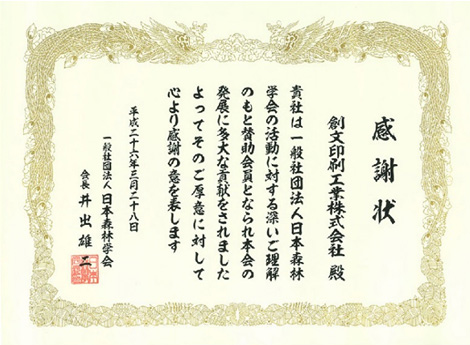 感謝状
創文印刷工業株式会社 殿
貴社は一般社団法人日本森林
学会の活動に対する深いご理解
のもと賛助会員となられ本会の
発展に多大な貢献をされました
よってそのご厚意に対して
心より感謝の意を表します
平成二十六年三月二十八日
一般社団法人日本森林学会
会長 井出雄二